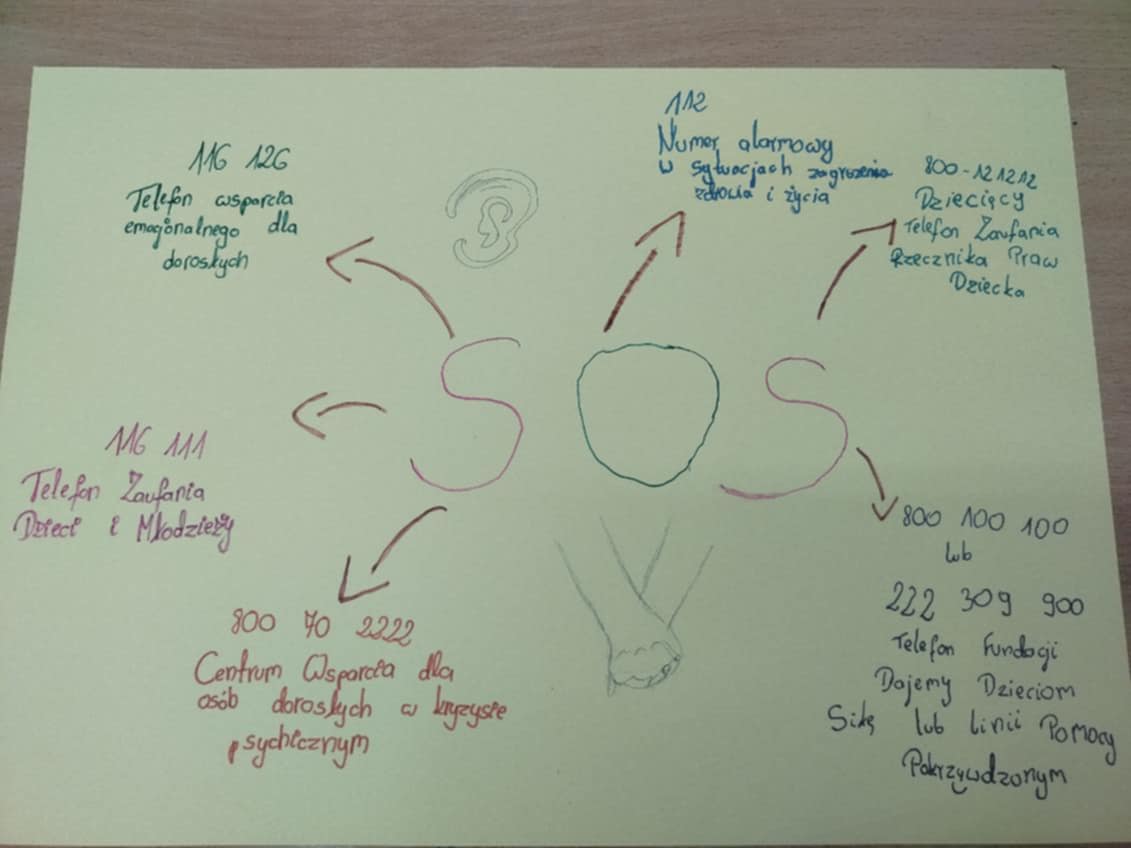 116 126
Telefon wsparcia
emocjonalnego dla
dorosłych
112
Numer alarmowy
w sytuacjach zagrożenia
zdrowia i życia
800-121212
Dziecięcy
Telefon Zaufania
Rzecznika Praw
Dziecka
SOS
116 111
Telefon Zaufania
Dzieci i Młodzieży
800 70 2222
Centrum Wsparcia dla
osób dorosłych w kryzysie
psychicznym
800 100 100
lub
222 309 900
Telefon Fundacji
Dajemy Dzieciom
Siłę lub Linii Pomocy
Pokrzywdzonym